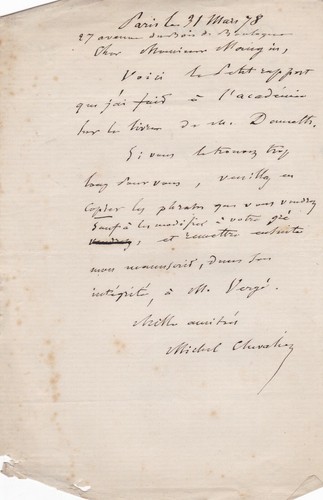 Paris le 31 Mars 78
27 avenue du Bois de Boulogne
Cher Monsieur Mangin,
Voici le petit rapport
que j'ai fait à l'académie
sur le livre de M.
Si vous le trouvez trop
long pour vous, veuillez en
copier les phrases que vous voudrez
sauf à les modifier à votre gré
et remettre ensuite
mon manuscrit, dans son
intégrité, à M. Vergé.
Mille amitiés
Michel Chevalier